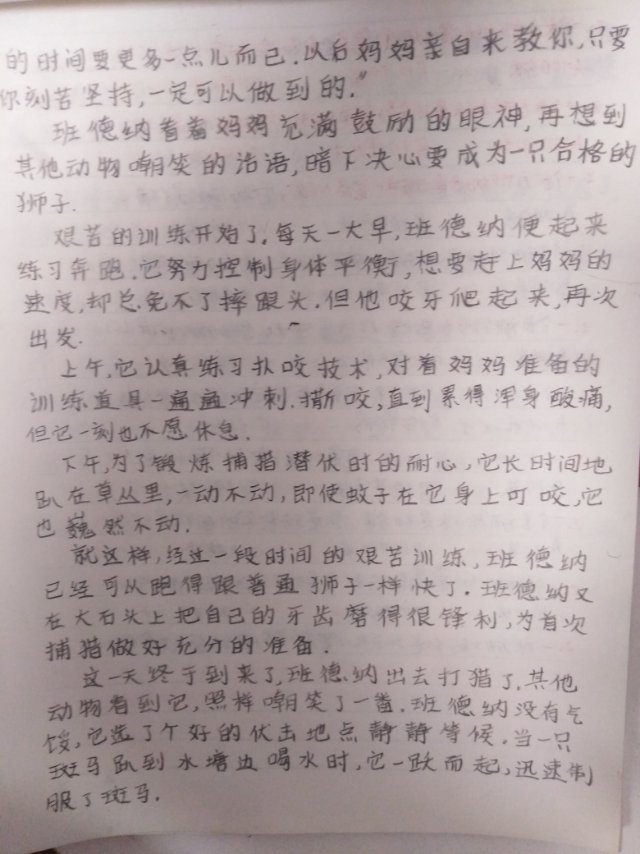 的时间要更多一点儿而已.以后妈妈亲自来教你,只要
你刻苦坚持,一定可以做到的."
班德纳看着妈妈充满鼓励的眼神,再想到
其他动物嘲笑的话语,暗下决心要成为一只合格的
狮子.
艰苦的训练开始了.每天一大早,班德纳便起来
练习奔跑.它努力控制身体平衡,想要赶上妈妈的
速度,却总免不了摔跟头.但他咬牙爬起来,再次
出发.
上午,它认真练习扑咬技术,对着妈妈准备的
训练道具一遍遍冲刺.撕咬,直到累得浑身酸痛,
但它一刻也不愿休息.
下午,为了锻炼捕猎潜伏时的耐心,它长时间地
趴在草丛里,一动不动,即使蚊子在它身上叮咬,它
也巍然不动.
就这样,经过一段时间的艰苦训练,班德纳
已经可以跑得跟普通狮子一样快了.班德纳又
在大石头上把自己的牙齿磨得很锋利,为首次
捕猎做好充分的准备.
这一天终于到来了,班德纳出去打猎了.其他
动物看到它,照样嘲笑了一番.班德纳没有气
馁,它选了个好的伏击地点静静等候.当一只
斑马趴到水塘边喝水时,它一跃而起,迅速制
服了斑马.